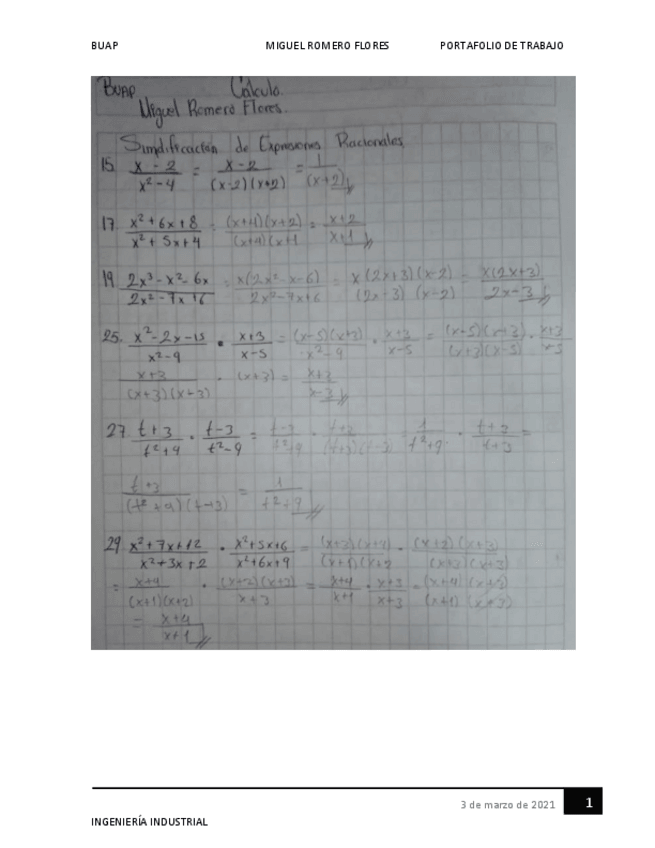 BUAP MIGUEL ROMERO FLORES PORTAFOLIO DE TRABAJO
BUAP Cálculo.
Miguel Romero Flores.
Simplificación de Expresiones Racionales
15. (x - 2)/(x² - 4) = (x - 2)/((x-2)(x+2)) = 1/(x+2)
17. (x² + 6x + 8)/(x² + 5x + 4) = ((x+4)(x+2))/((x+4)(x+1) = (x+2)/(x+1)
19. (2x³ - x² - 6x)/(2x² - 7x + 6) = (x(2x² - x - 6))/(2x² - 7x + 6) = (x(2x+3)(x-2))/((2x-3)(x-2)) = (x(2x+3))/(2x-3)
25. (x² - 2x - 15)/(x² - 9) · (x+3)/(x-5) = ((x-5)(x+3))/(x² - 9) · (x+3)/(x-5) = ((x-5)(x+3))/((x+3)(x-5)) · (x+3)/(x-5)
(x+3)/((x+3)(x-3)) · (x+3) = (x+3)/(x-3)
27. (t+3)/(t²+9) · (t-3)/(t²-9) = (t-3)/(t²+9) · (t+3)/((t+3)(t-3)) = 1/(t²+9) · (t+3)/(t+3) =
(t+3)/((t²+9)(t+3)) = 1/(t²+9)
29. (x²+7x+12)/(x²+3x+2) · (x²+5x+6)/(x²+6x+9) = ((x+3)(x+4))/((x+1)(x+2) · ((x+2)(x+3))/((x+3)(x+3))
= (x+4)/((x+1)(x+2)) · ((x+2)(x+3))/(x+3) = (x+4)/(x+1) · (x+3)/(x+3) = ((x+4)(x+3))/((x+1)(x+3))
= (x+4)/(x+1)
3 de marzo de 2021 1
INGENIERÍA INDUSTRIAL